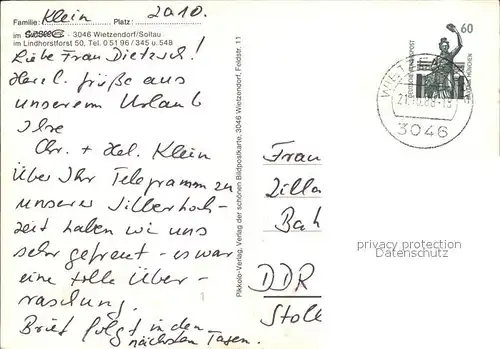 Familie: Klein Platz: 20.10.
im SüdSee - 3046 Wietzendorf/Soltau
im Lindhorstforst 50, Tel. 0 51 96 / 345 u. 549
Liebe Frau Dietzsch!
Herzl. Grüße aus
unserem Urlaub
Ihre
Chr. + Hel. Klein
Über Ihr Telegramm zu
unserer Silberhoch-
zeit haben wir uns
sehr gefreut - es war
eine tolle Über-
raschung.
Brief folgt in den
nächsten Tagen.
Pikkolo-Verlag, Verlag der schönen Bildpostkarte, 3046 Wietzendorf, Feldstr. 11
60
DEUTSCHE BUNDESPOST
MÜNCHEN
WIET
3046
Frau
Zilla
Bah
DDR
Stoll
privacy protection
Datenschutz